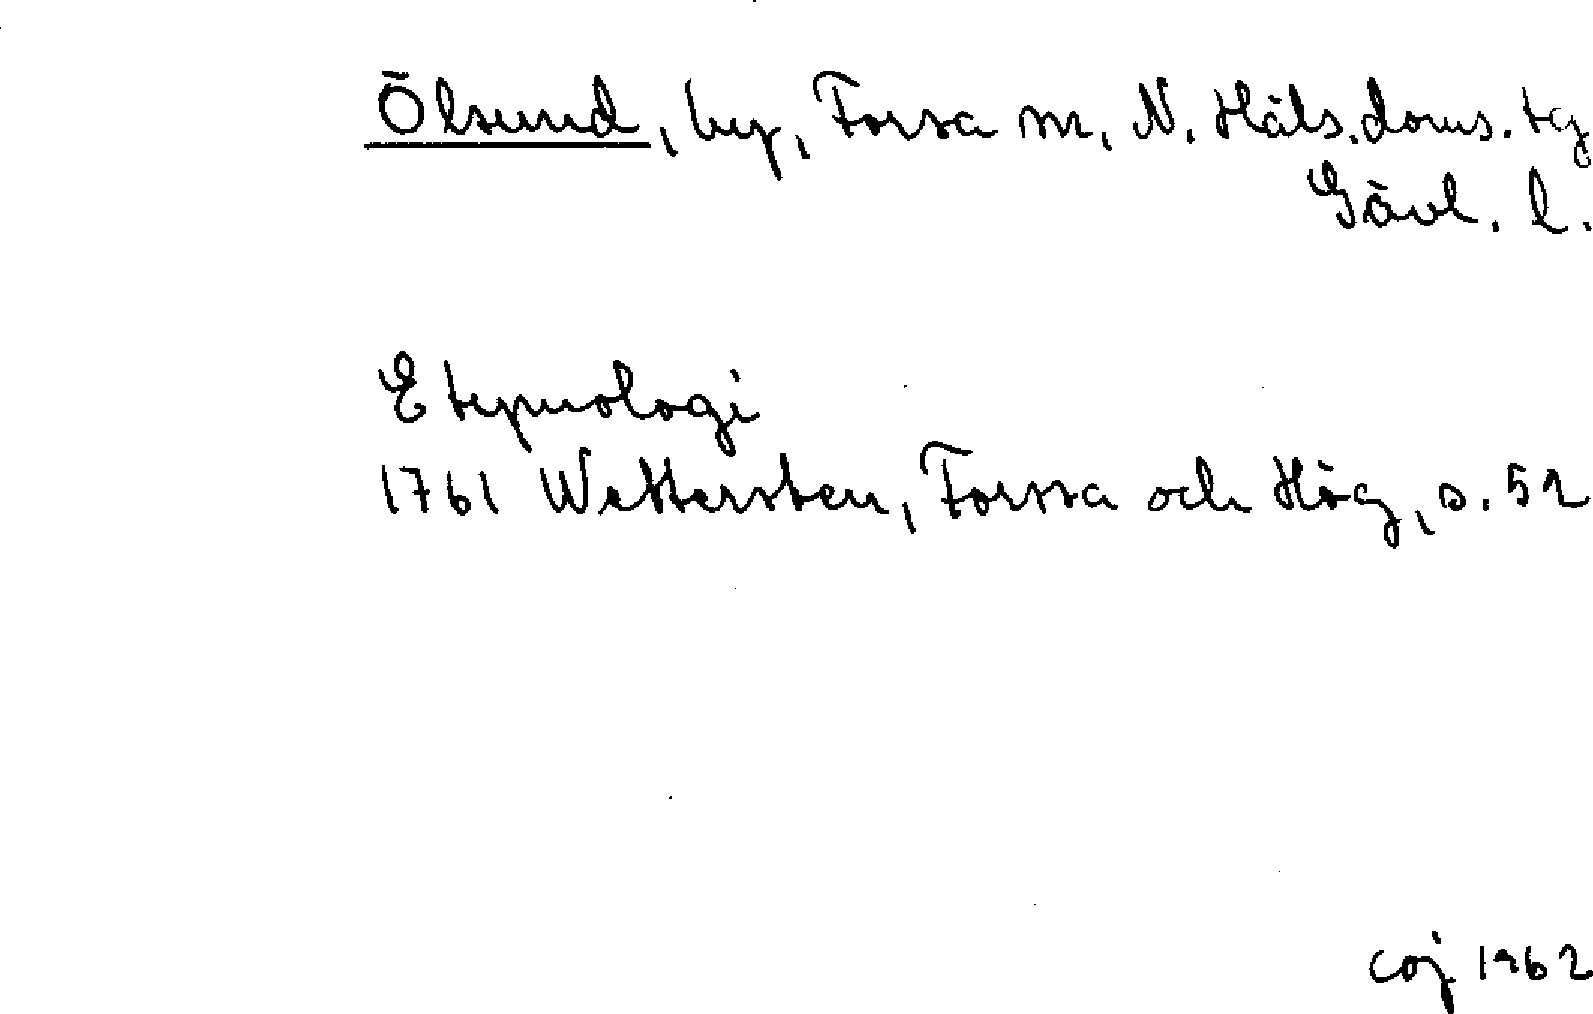 Ölsund, by, Forsa sn, N. Häls. doms. tg
Gävl. l.
Etymologi
1761 Wettersten, Forssa och Hög, s. 52
coj 1962